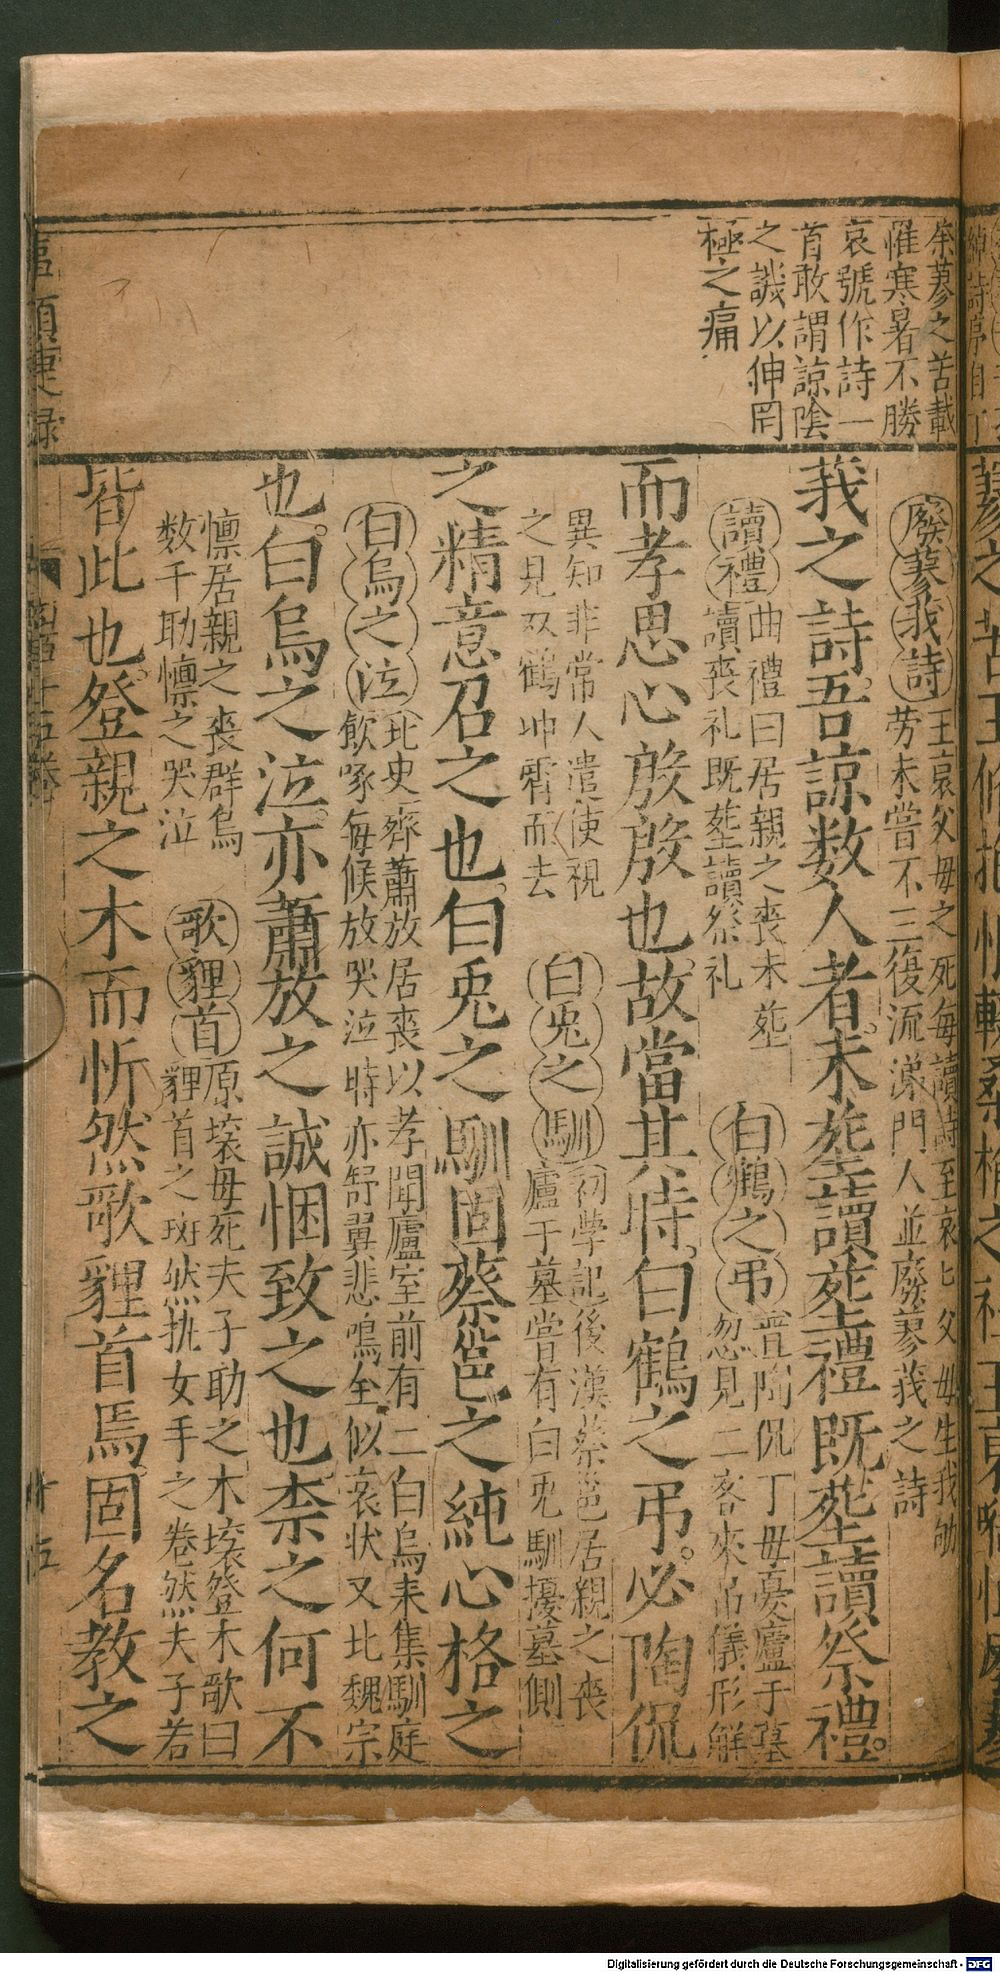 荼蓼之苦載
罹寒暑不勝
哀號作詩一
首敢謂諒陰
之誠以伸罔
極之痛
廢蓼莪詩 王裒父母之死每讀詩至哀匕父毋生我劬
劳未嘗不三復流涕門人並廢蓼莪之詩
莪之詩吾諒数人者未塟讀塟禮既塟讀祭禮
讀禮 曲禮曰居親之喪未塟
讀丧礼既塟讀祭礼
白鶴之弔 晋陶侃丁毋憂廬于墓
忽見二客來吊儀形鮮
異知非常人遣使視
之見双鶴冲霄而去
而孝思心慇慇也故當其時白鶴之弔必陶侃
白兎之馴 初学記後漢蔡邕居親之喪
廬于墓嘗有白兎馴擾墓側
之精意召之也白兎之馴固蔡邕之純心格之
白烏之泣 北史齊蕭放居丧以孝聞廬室前有二白烏来集馴庭
飲啄每候放哭泣時亦舒翼悲鳴全似哀状又北魏宗
懔居親之喪群烏
数千助懔之哭泣
也白烏之泣亦蕭放之誠悃致之也柰之何不
歌貍首 原壤毋死夫子助之木壤登木歌曰
貍首之斑然执女手之卷然夫子若
皆此也登親之木而忻然歌貍首焉固名教之
十五
Digitalisierung gefördert durch die Deutsche Forschungsgemeinschaft - DFG